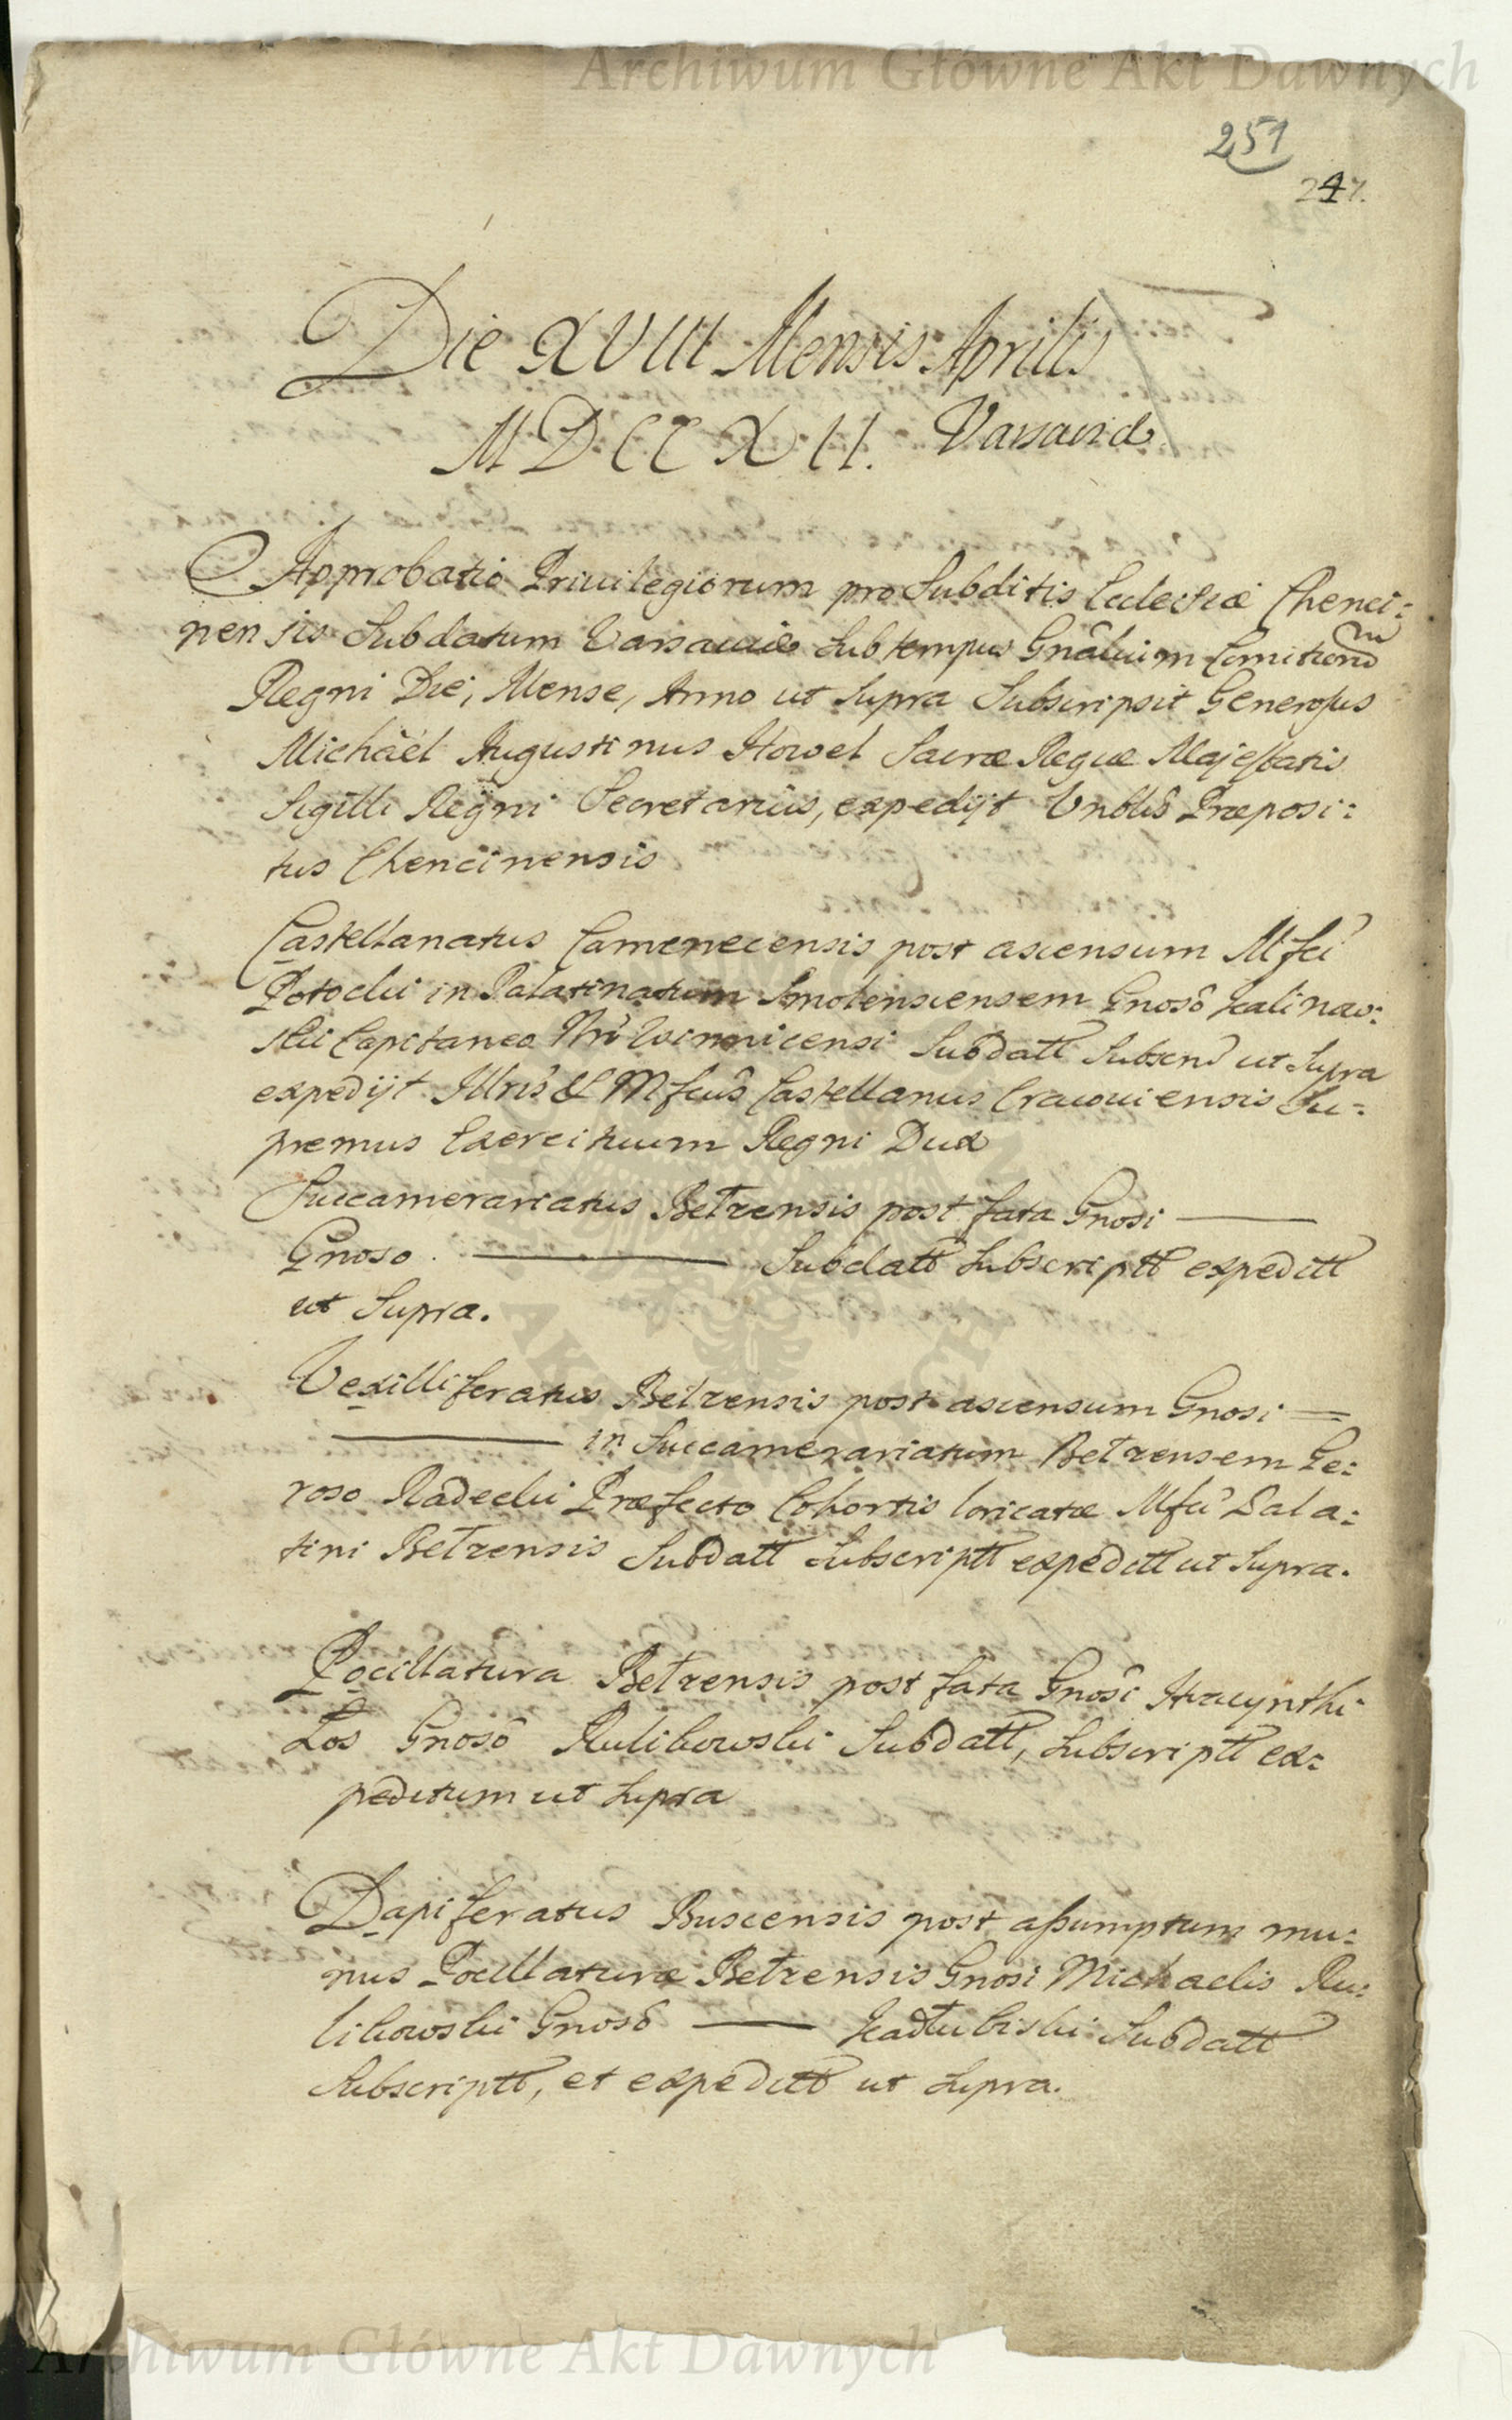 Archiwum Główne Akt Dawnych
251
247.
Die XVIII Mensis Aprilis
MDCCXII. Varsaviæ
Approbatio Privilegiorum pro Subditis Ecclesiæ Chenci:
nensis Subdatum Varsaviæ Sub tempus Gnâlium Comitiorū
Regni Die, Mense, Anno ut Supra Subscripsit Generosus
Michaël Augustinus Howel Sacræ Regiæ Majestatis
Sigilli Regni Secretarius, expedijt Vnblis Præposi:
tus Chencinensis
Castellanatus Camenecensis post ascensum Mfci
Potocki in Palatinatum Smolenscensem Gnosô Kalinow:
ski Capitaneo Winnicensi Subdatt Subscrip ut Supra
expedijt Illris & Mfcus Castellanus Cracoviensis Su:
premus Exercituum Regni Dux
Succamerariatus Belzensis post fata Gnosi ———
Gnoso ——— Subdatt Subscriptt expeditt
ut Supra.
Vexilliferatus Belzensis post ascensum Gnosi =
——— in Succamerariatum Belzensem Ge:
roso Radecki Præfecto Cohortis loricatæ Mfci Pala:
tini Belzensis Subdatt Subscriptt expeditt ut Supra.
Pocillatura Belzensis post fata Gnosi Hyacynthi
Los Gnosô Rulikowski Subdatt, Subscriptt ex:
peditum ut Supra
Dapiferatus Buscensis post assumptum mu:
nus Pocillaturæ Belzensis Gnosi Michaelis Ru:
likowski Gnosô ——— Kadłubiski Subdatt
Subscriptt, et expeditt ut Supra.
Archiwum Główne Akt Dawnych